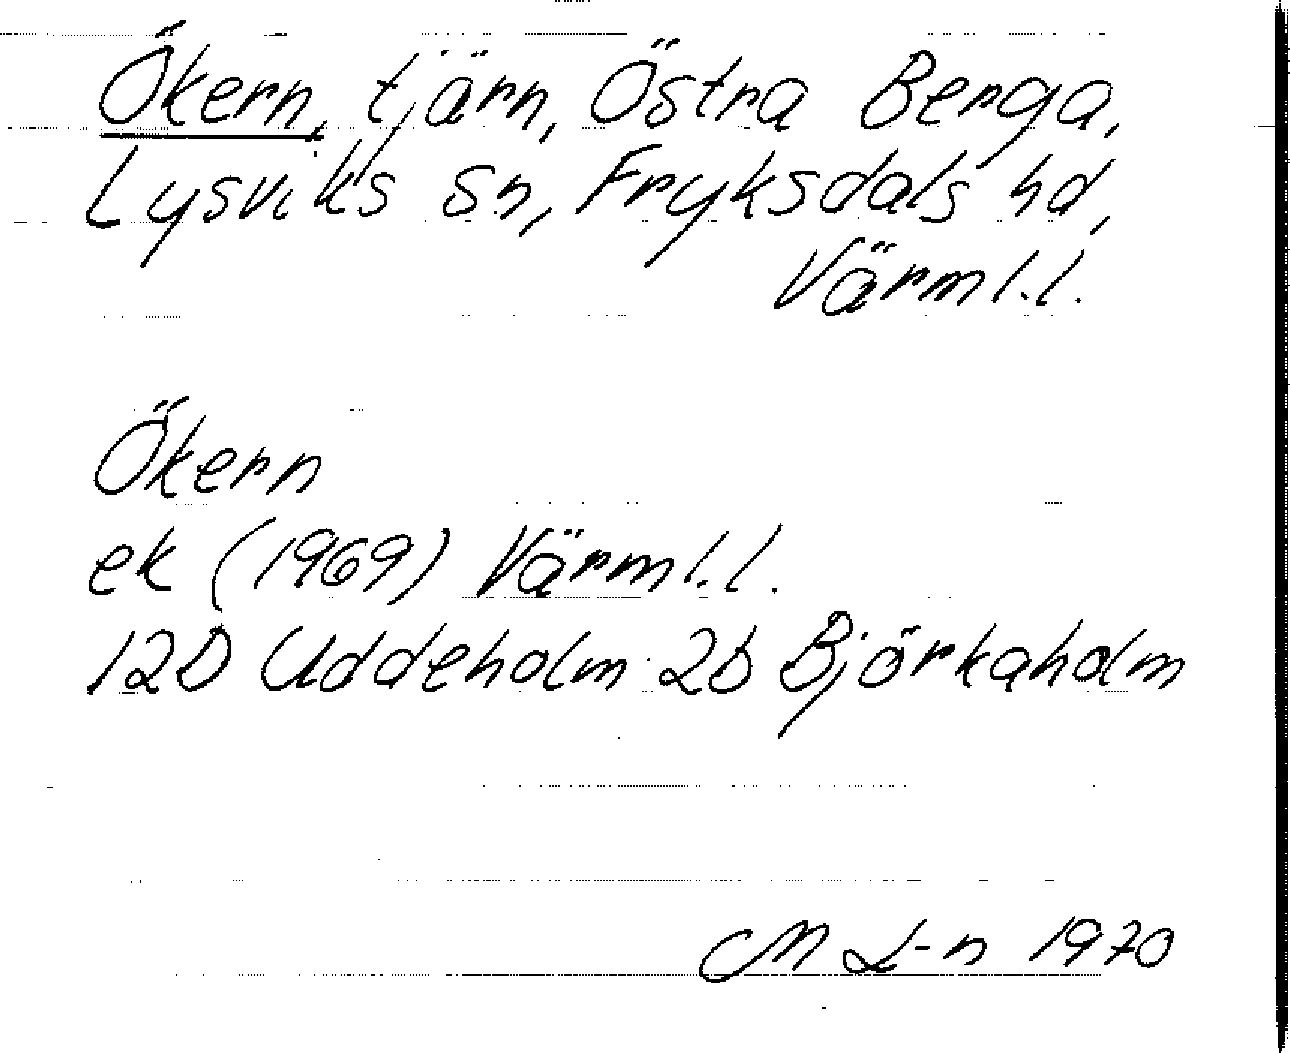 Ökern, tjärn, Östra Berga,
Lysviks sn, Fryksdals hd,
Värml.l.
Ökern
ek (1969) Värml.l.
12D Uddeholm 2b Björkaholm
M L-n 1970